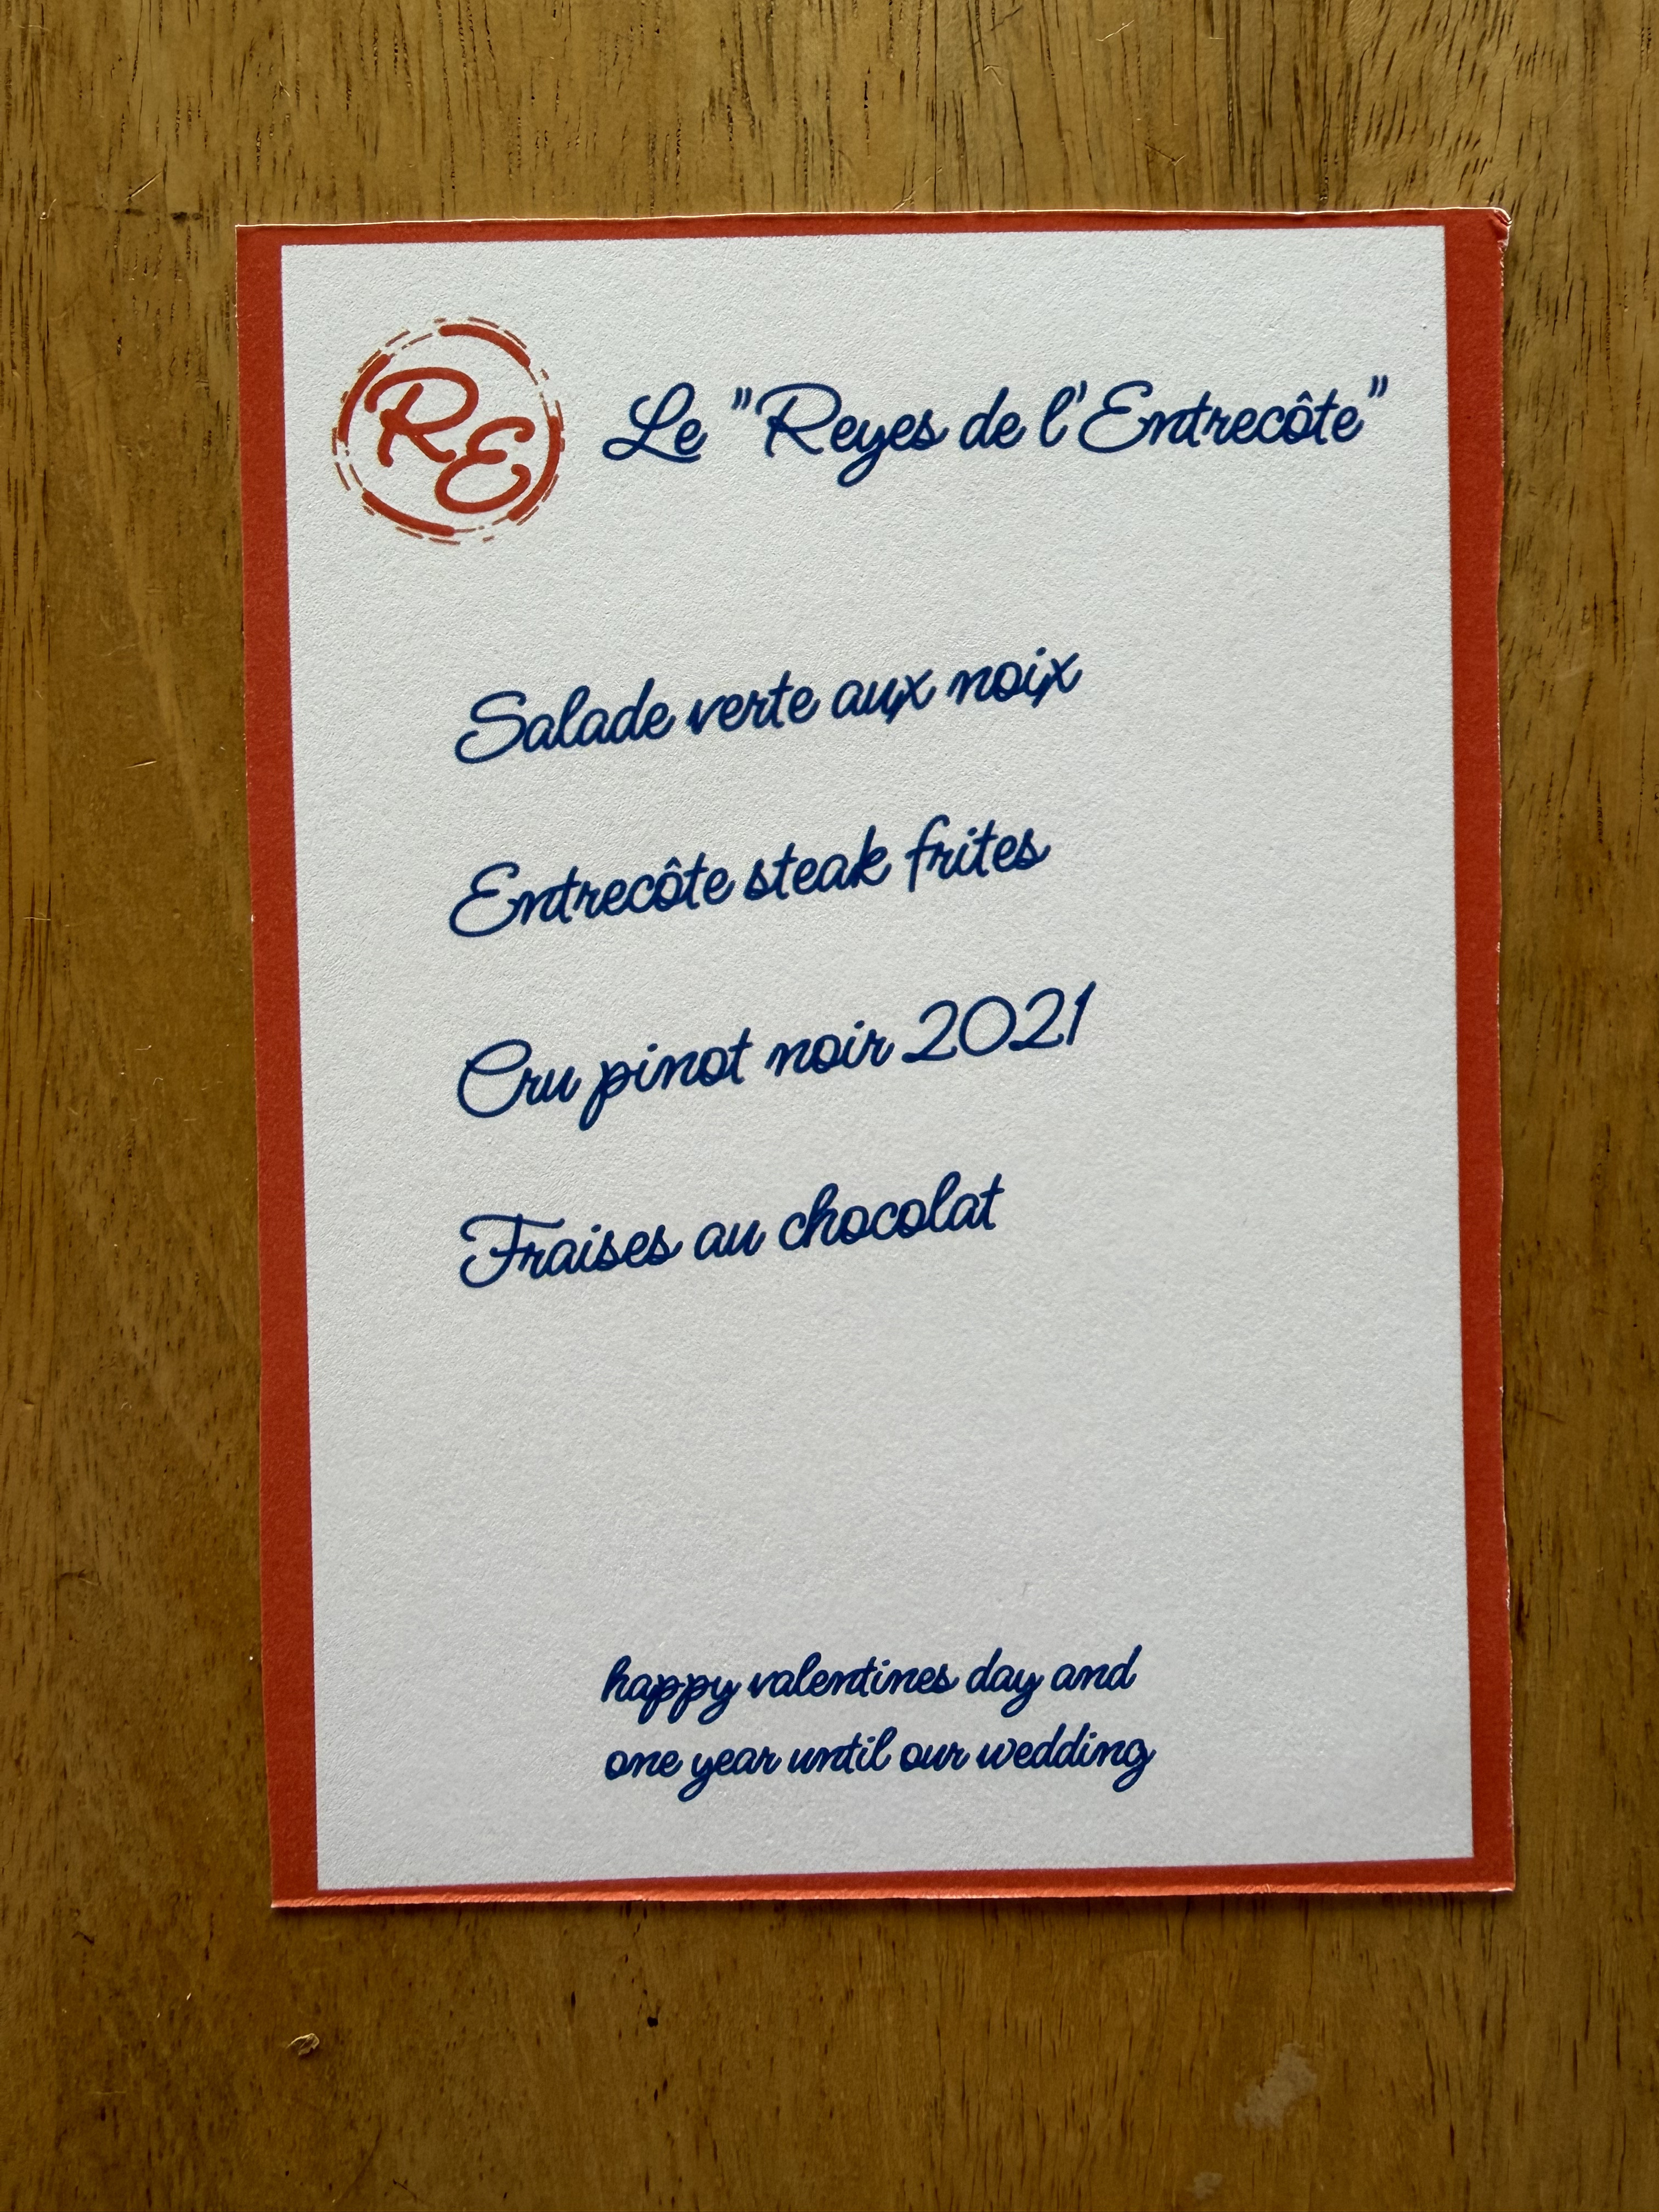 RE
Le "Reyes de l'Entrecôte"
Salade verte aux noix
Entrecôte steak frites
Cru pinot noir 2021
Fraises au chocolat
happy valentines day and
one year until our wedding